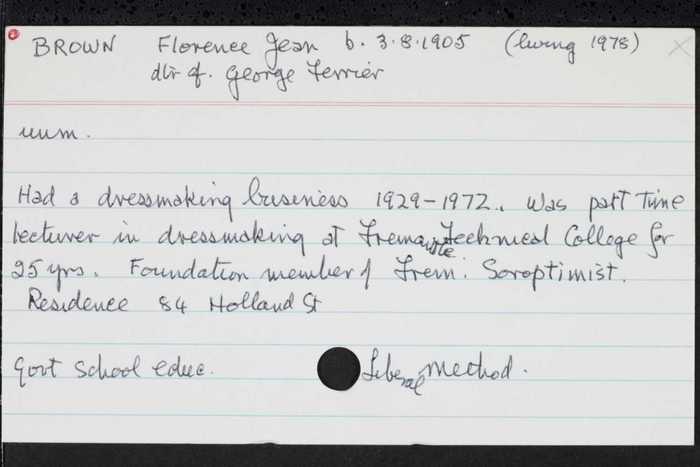 BROWN Florence Jean b. 3.8.1905 (living 1978)
dtr of. George Ferrier
unm.
Had a dressmaking business 1929-1972. Was part time
lecturer in dressmaking at Fremantle Technical College for
25 yrs. Foundation member of Frem. Soroptimist.
Residence 84 Holland St
Govt school educ. Liberal Method.